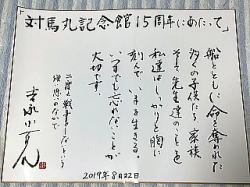 「対馬丸記念館15周年にあたって」
船とともに命を奪われた
多くの子供たち、家族
そして先生達のことを
私達はしっかりと胸に
刻んで、今を生きる
いつまでも忘れないことが
大切です。
二度と戦争をしないという
強い思いのなかで
吉永小百合
2019年8月22日